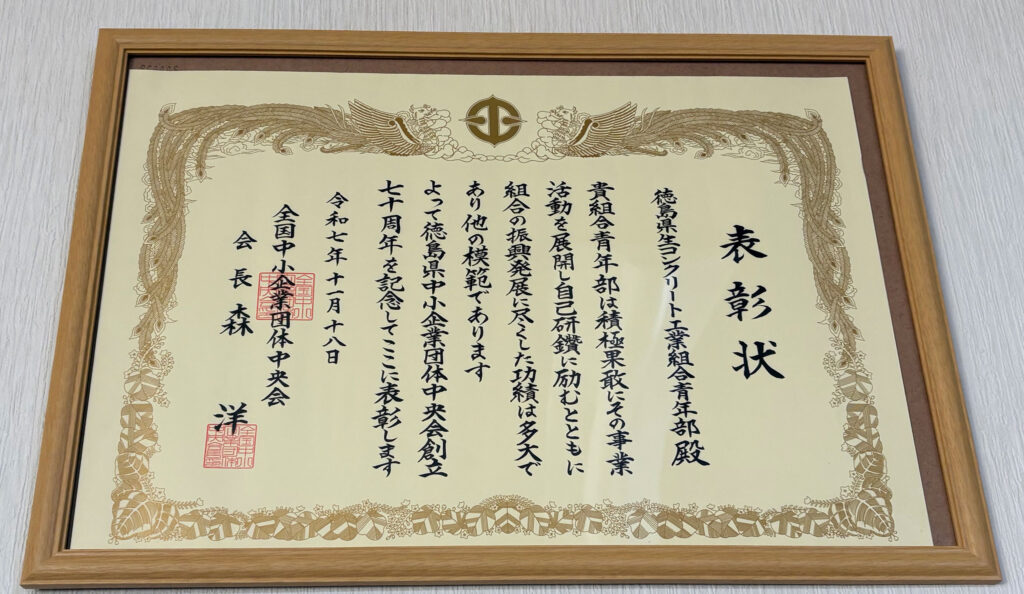 表彰状
徳島県生コンクリート工業組合青年部殿
貴組合青年部は積極果敢にその事業
活動を展開し自己研鑽に励むとともに
組合の振興発展に尽くした功績は多大で
あり他の模範であります
よって徳島県中小企業団体中央会創立
七十周年を記念してここに表彰します
令和七年十一月十八日
全国中小企業団体中央会
会長森洋